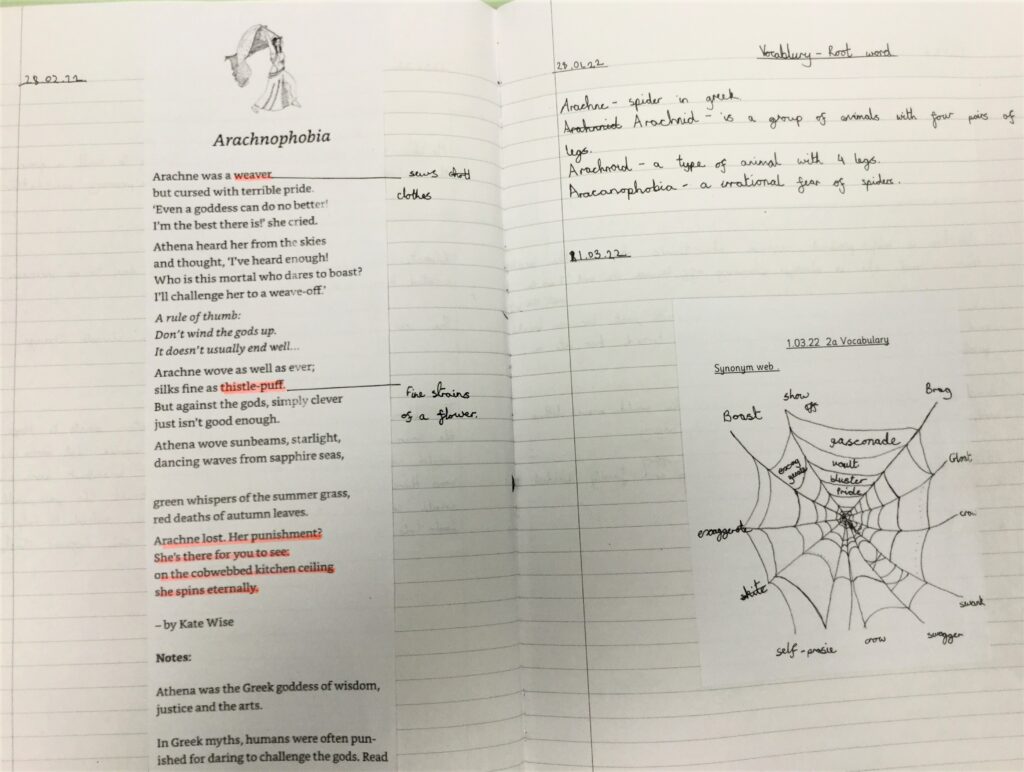 28.02.22
Arachnophobia
Arachne was a weaver
but cursed with terrible pride.
'Even a goddess can do no better!
I'm the best there is!' she cried.
Athena heard her from the skies
and thought, 'I've heard enough!
Who is this mortal who dares to boast?
I'll challenge her to a weave-off.'
A rule of thumb:
Don't wind the gods up.
It doesn't usually end well...
Arachne wove as well as ever;
silks fine as thistle-puff.
But against the gods, simply clever
just isn't good enough.
Athena wove sunbeams, starlight,
dancing waves from sapphire seas,
green whispers of the summer grass,
red deaths of autumn leaves.
Arachne lost. Her punishment?
She's there for you to see:
on the cobwebbed kitchen ceiling
she spins eternally.
– by Kate Wise
Notes:
Athena was the Greek goddess of wisdom,
justice and the arts.
In Greek myths, humans were often pun-
ished for daring to challenge the gods. Read
sews
clothes
Fine strains
of a flower.
Vocablury - Root word
Arachne - spider in greek
Arachnid - is a group of animals with four pairs of
legs.
Arachnoid - a type of animal with 4 legs.
Aracanophobia - a irrational fear of spiders.
1.03.22
1.03.22 2a Vocabulary
Synonym web.
show
off
Brag
Boast
gasconade
vault
bluster
pride
Gloat
crow
exaggerate
skite
swank
swagger
crow
self-prasie